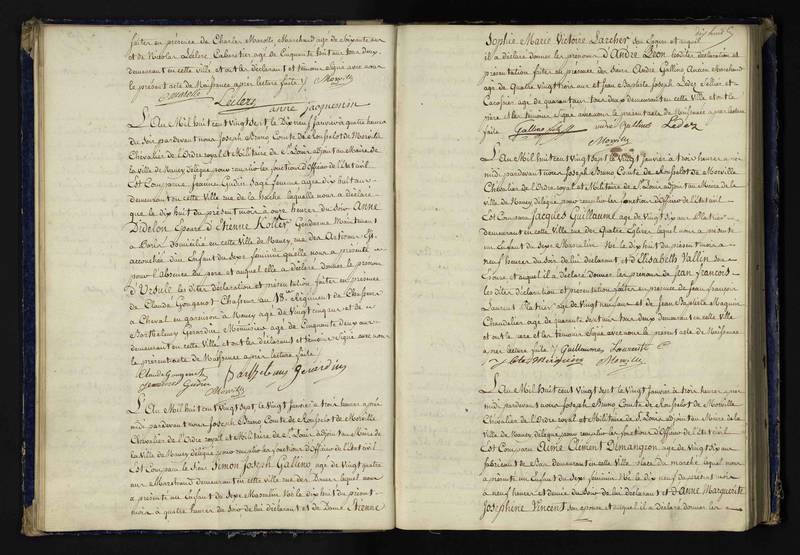 faite en présence de Charles Marotte Marchand agé de soixante ans
et de Nicolas Leclerc Cabaretier agé de Cinquante huit ans tous deux
demeurant en cette Ville et ont le déclarant et témoins signé avec nous
le présent acte de Naissance après lecture faite
Leclerc anne Jacquemin Morville
L'An Mil huit cent Vingt sept le Dix neuf Janvier à quatre heures
du soir pardevant nous Joseph Bruno Comte de Rousselot de Morville
Chevalier de l'Ordre royal et Militaire de St Louis adjoint au Maire de
la ville de Nancy délégué pour remplir les fonctions d'Officier de l'Etat civil
Est Comparue Jeanne Gudin Sage femme agée dix huit ans
demeurant en cette Ville rue de la hache laquelle nous a déclaré
que le dix huit du présent mois à onze heures du soir Anne
Didelon Epouse d'Etienne Koller Gendarme Maintenant
à Paris Domicilié en cette Ville de Nancy, rue des Artisans
accouchée d'un Enfant du Sexe féminin qu'elle nous a présenté
pour l'absence du père et auquel elle a déclaré donner le prénom
d'Ursule les dites déclaration et présentation faites en présence
de Claude Gougenot Chasseur au 13me Régiment de Chasseurs
à Cheval en garnison à Nancy agé de Vingt cinq ans et de
Barthelemy Girardin Menuisier agé de Cinquante deux ans
demeurant en cette Ville et ont les déclarant et témoins signé avec nous
le présent acte de Naissance après lecture faite
Claude Gougenot
Jeanne Gudin Barthelemy gerardin
Morville
L'An Mil huit cent Vingt sept le Vingt Janvier à trois heures après
midi pardevant nous Joseph Bruno Comte de Rousselot de Morville
Chevalier de l'Ordre royal et Militaire de St Louis adjoint au Maire de
la Ville de Nancy délégué pour remplir les fonctions d'Officier de l'Etat civil
Est Comparu le Sieur Simon Joseph Gallino agé de Vingt quatre
ans Marchand demeurant en cette ville rue des Dames lequel nous
a présenté un Enfant du Sexe Masculin Né le dix huit du présent
mois à quatre heures du soir de lui déclarant et de Dame Etienne
Sophie Marie Victoire Larcher son Epouse et auquel
il a déclaré donner les prénoms d'André Léon les dites déclaration et
présentation faites en présence des Sieurs André Gallino Ancien Marchand
agé de Quatre vingt trois ans et Jean Baptiste Joseph Ledez Sellier et
Carossier agé de quarante ans tous deux demeurant en cette Ville et ont le
père et les témoins Signé avec nous le présent acte de Naissance après lecture
faite Gallino André Gallino Ledez
Morville
L'An Mil huit cent Vingt sept le Vingt Janvier à trois heures après
midi pardevant nous Joseph Bruno Comte de Rousselot de Morville
Chevalier de l'Ordre royal et Militaire de St Louis adjoint au Maire de la
Ville de Nancy délégué pour remplir les fonctions d'Officier de l'Etat civil
Est Comparu Jacques Guillaume agé de Vingt six ans Platrier
demeurant en cette Ville rue des Quatre Eglises lequel nous a présenté
un Enfant du Sexe Masculin Né le dix huit du présent mois à
neuf heures du soir de lui déclarant et d'Elisabeth Vallin son
Epouse et auquel il a déclaré donner les prénoms de Jean François
les dites déclaration et présentation faites en présence de Jean François
Laurent Platrier agé de Vingt neuf ans et de Jean Baptiste Maguin
Chandelier agé de quarante sept ans tous deux demeurant en cette Ville
et ont le père et les témoins Signé avec nous le présent acte de Naissance
après lecture faite Guillaume Laurent
Morville
L'An Mil huit cent Vingt sept le Vingt Janvier à trois heures après
midi pardevant nous Joseph Bruno Comte de Rousselot de Morville
Chevalier de l'Ordre royal et Militaire de St Louis adjoint au Maire de la
Ville de Nancy délégué pour remplir les fonctions d'Officier de l'Etat civil
Est Comparu Aimé Clément Démangeon agé de Vingt six ans
fabricant de Bas demeurant en cette Ville place du marché lequel nous
a présenté un Enfant du Sexe féminin Né le dix neuf du présent mois
à neuf heures et demie du Soir de lui déclarant et d'Anne Marguerite
Joséphine Vincent son épouse et auquel il a déclaré donner les